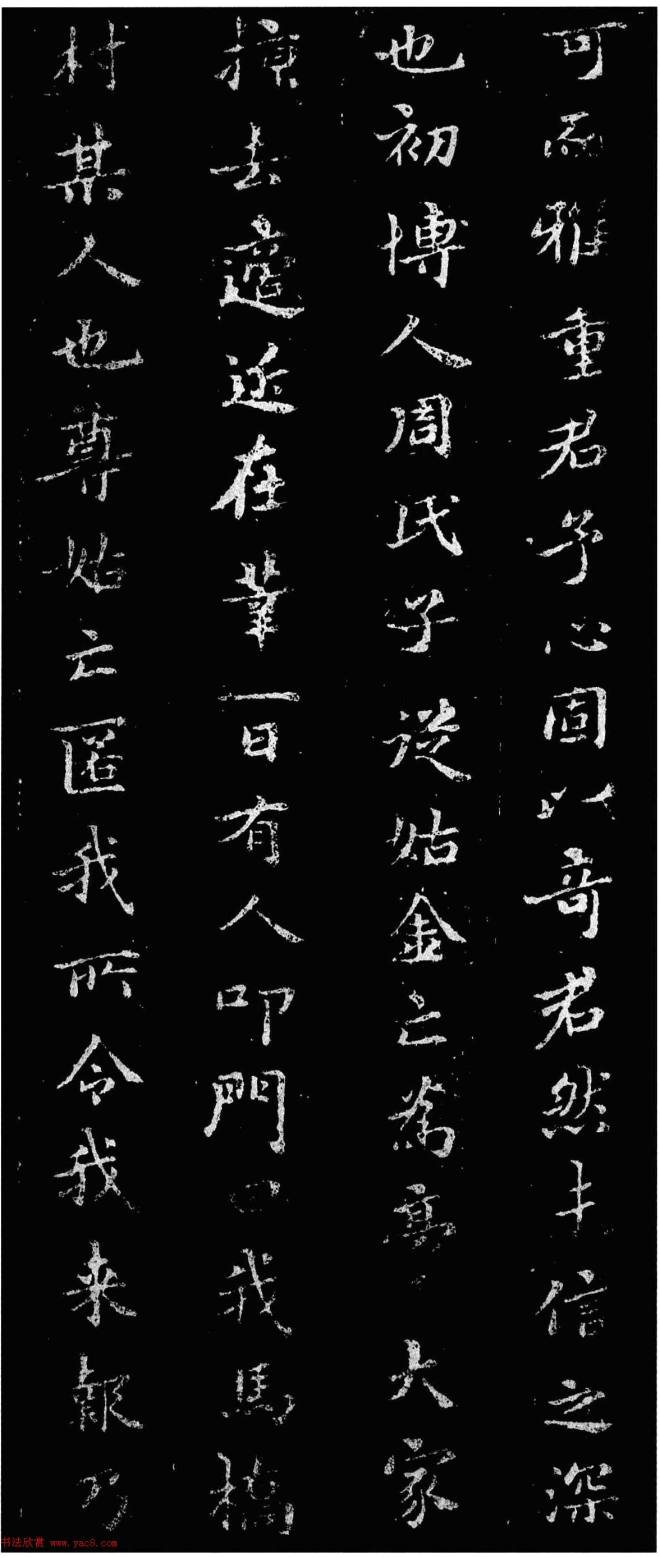 可而雅重君子心固以奇君然未信之深
也初博人周氏子從姑金亡為高大家
掠去遠近在輩一日有人叩門曰我馬橋
村某人也尊姑亡匿我所令我来報乃
书法欣赏 www.yac8.com